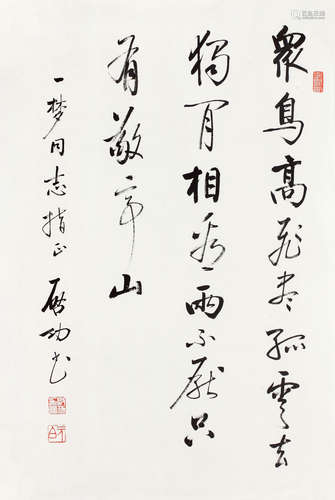 眾鳥高飛盡孤雲去
獨閒相看兩不厭只
有敬亭山
一夢同志指正 啟功書